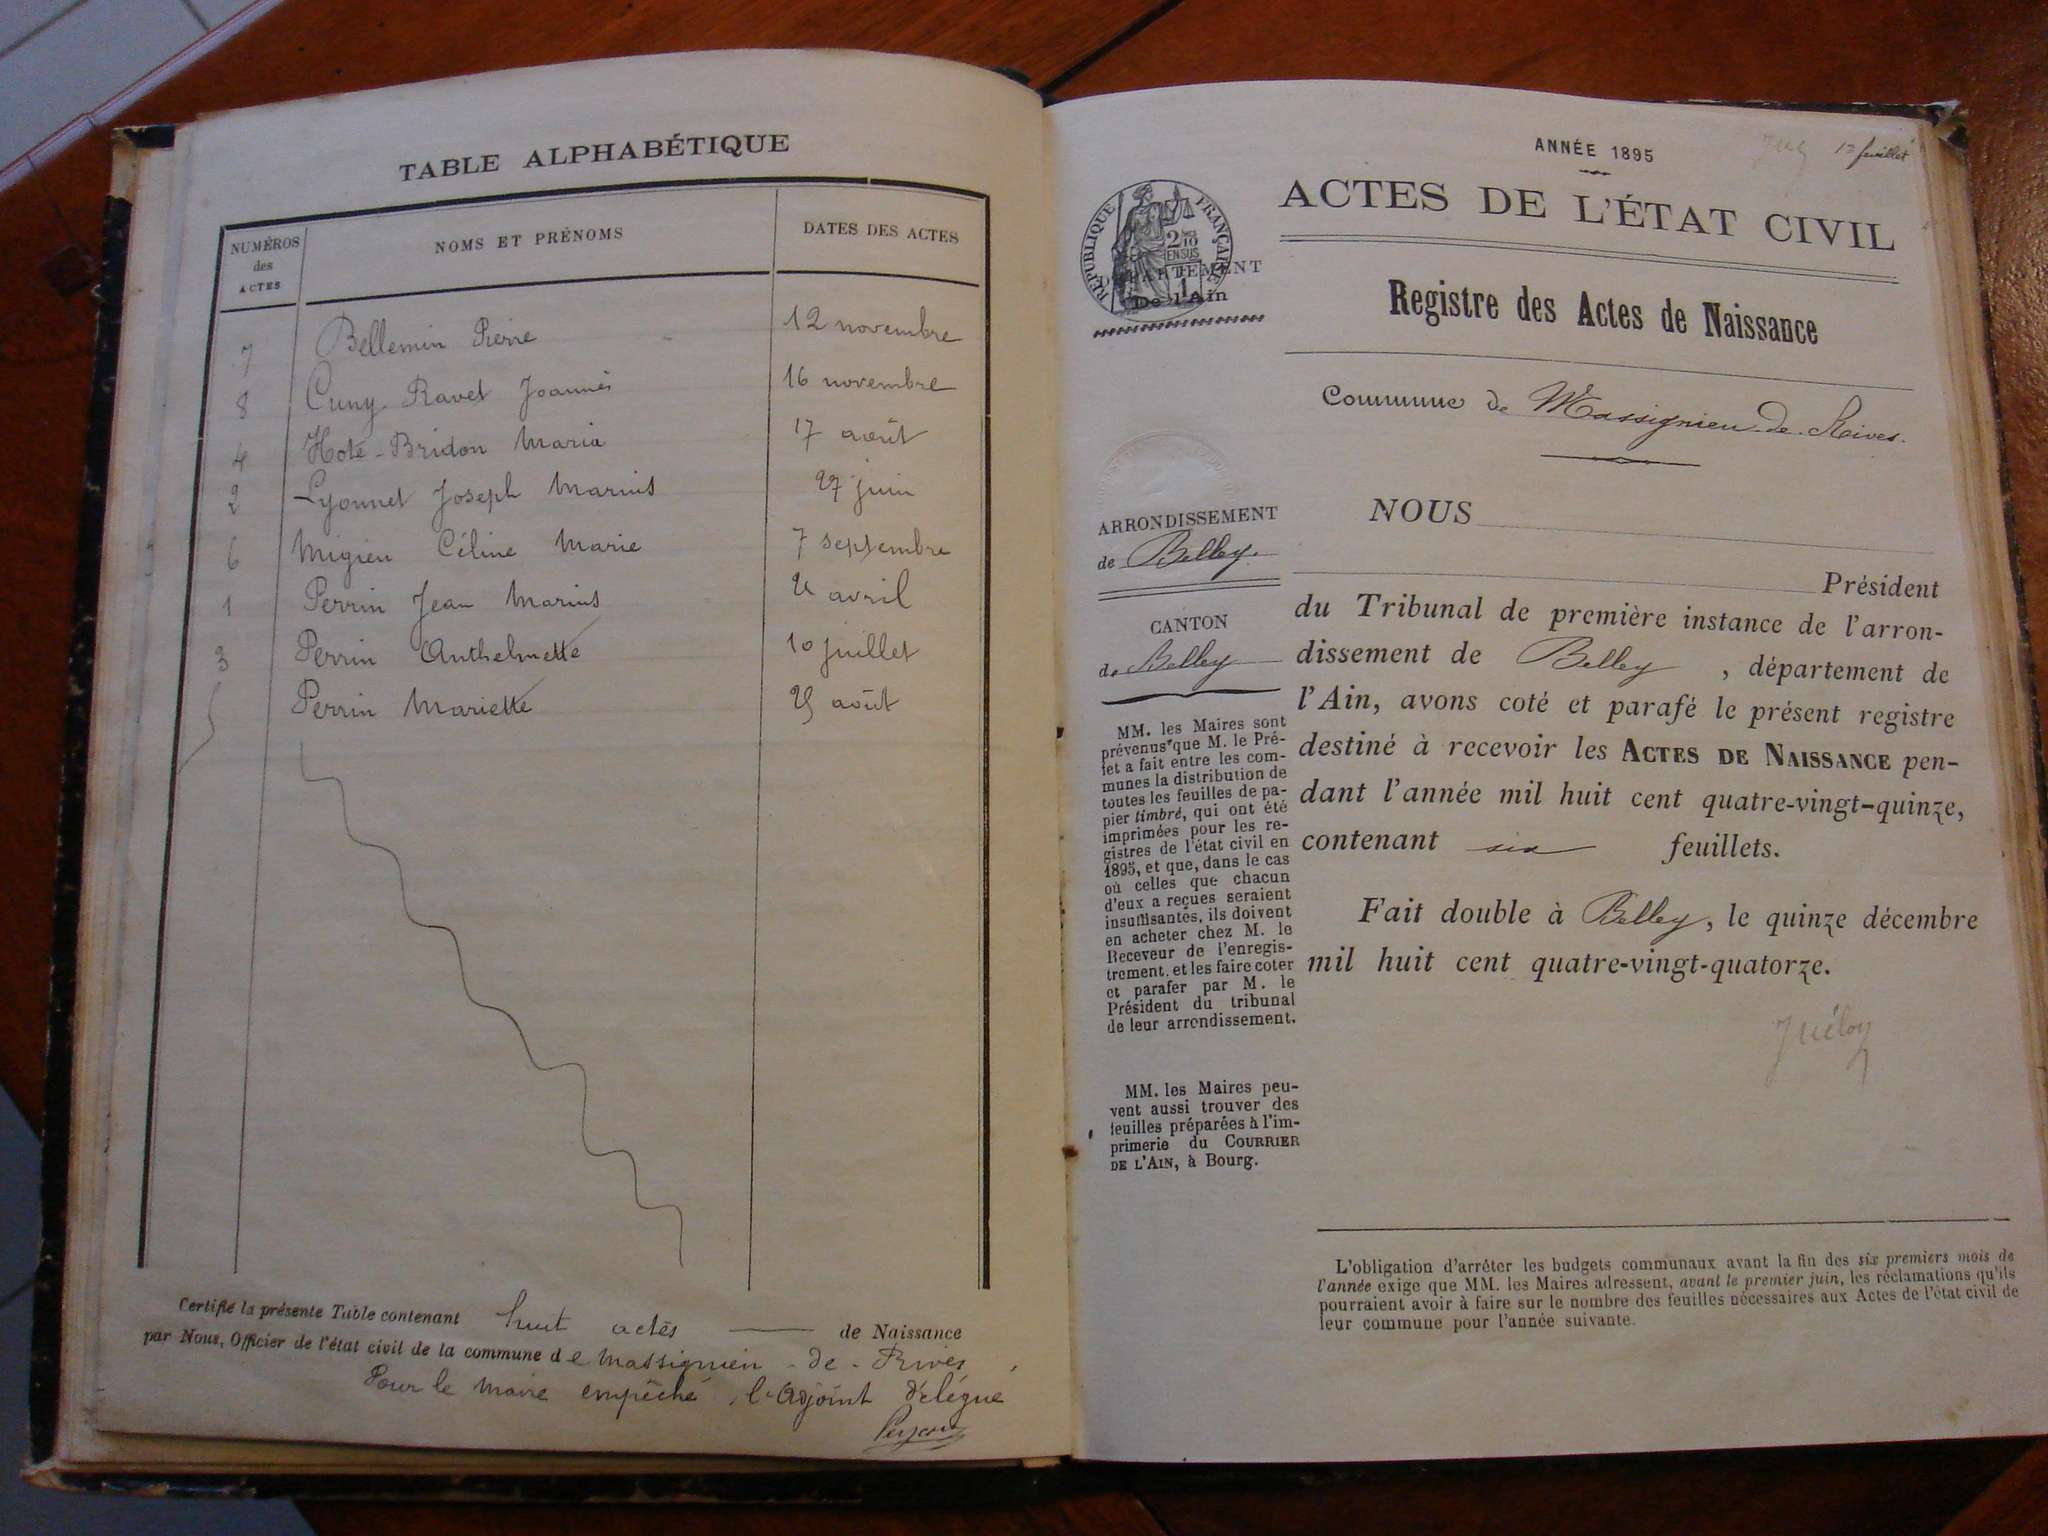 TABLE ALPHABÉTIQUE
NUMÉROS des ACTES NOMS ET PRÉNOMS DATES DES ACTES
7 Bellemin Pierre 12 novembre
8 Cuny-Ravet Joannès 16 novembre
4 Hote-Bridon Maria 17 août
2 Lyonnet Joseph Marius 27 juin
6 Migieu Céline Marie 7 septembre
1 Perrin Jean Marius avril
3 Perrin Anthelmette 10 juillet
5 Perrin Mariette août
Certifié la présente Table contenant huit actes de Naissance
par Nous, Officier de l'état civil de la commune de Massignieu-de-Rives,
Pour le Maire empêché, l'Adjoint délégué
ANNÉE 1895
1er feuillet
ACTES DE L'ÉTAT CIVIL
RÉPUBLIQUE FRANÇAISE
De l'Ain
Registre des Actes de Naissance
Commune de Massignieu-de-Rives.
ARRONDISSEMENT
de Belley.
CANTON
de Belley
MM. les Maires sont
prévenus que M. le Pré-
fet a fait entre les com-
munes la distribution de
toutes les feuilles de pa-
pier timbré, qui ont été
imprimées pour les re-
gistres de l'état civil en
1895, et que, dans le cas
où celles que chacun
d'eux a reçues seraient
insuffisantes, ils doivent
en acheter chez M. le
Receveur de l'enregis-
trement, et les faire coter
et parafer par M. le
Président du tribunal
de leur arrondissement.
MM. les Maires peu-
vent aussi trouver des
feuilles préparées à l'im-
primerie du COURRIER
DE L'AIN, à Bourg.
NOUS
Président
du Tribunal de première instance de l'arron-
dissement de Belley, département de
l'Ain, avons coté et parafé le présent registre
destiné à recevoir les ACTES DE NAISSANCE pen-
dant l'année mil huit cent quatre-vingt-quinze,
contenant six feuillets.
Fait double à Belley, le quinze décembre
mil huit cent quatre-vingt-quatorze.
L'obligation d'arrêter les budgets communaux avant la fin des six premiers mois de
l'année exige que MM. les Maires adressent, avant le premier juin, les réclamations qu'ils
pourraient avoir à faire sur le nombre des feuilles nécessaires aux Actes de l'état civil de
leur commune pour l'année suivante.